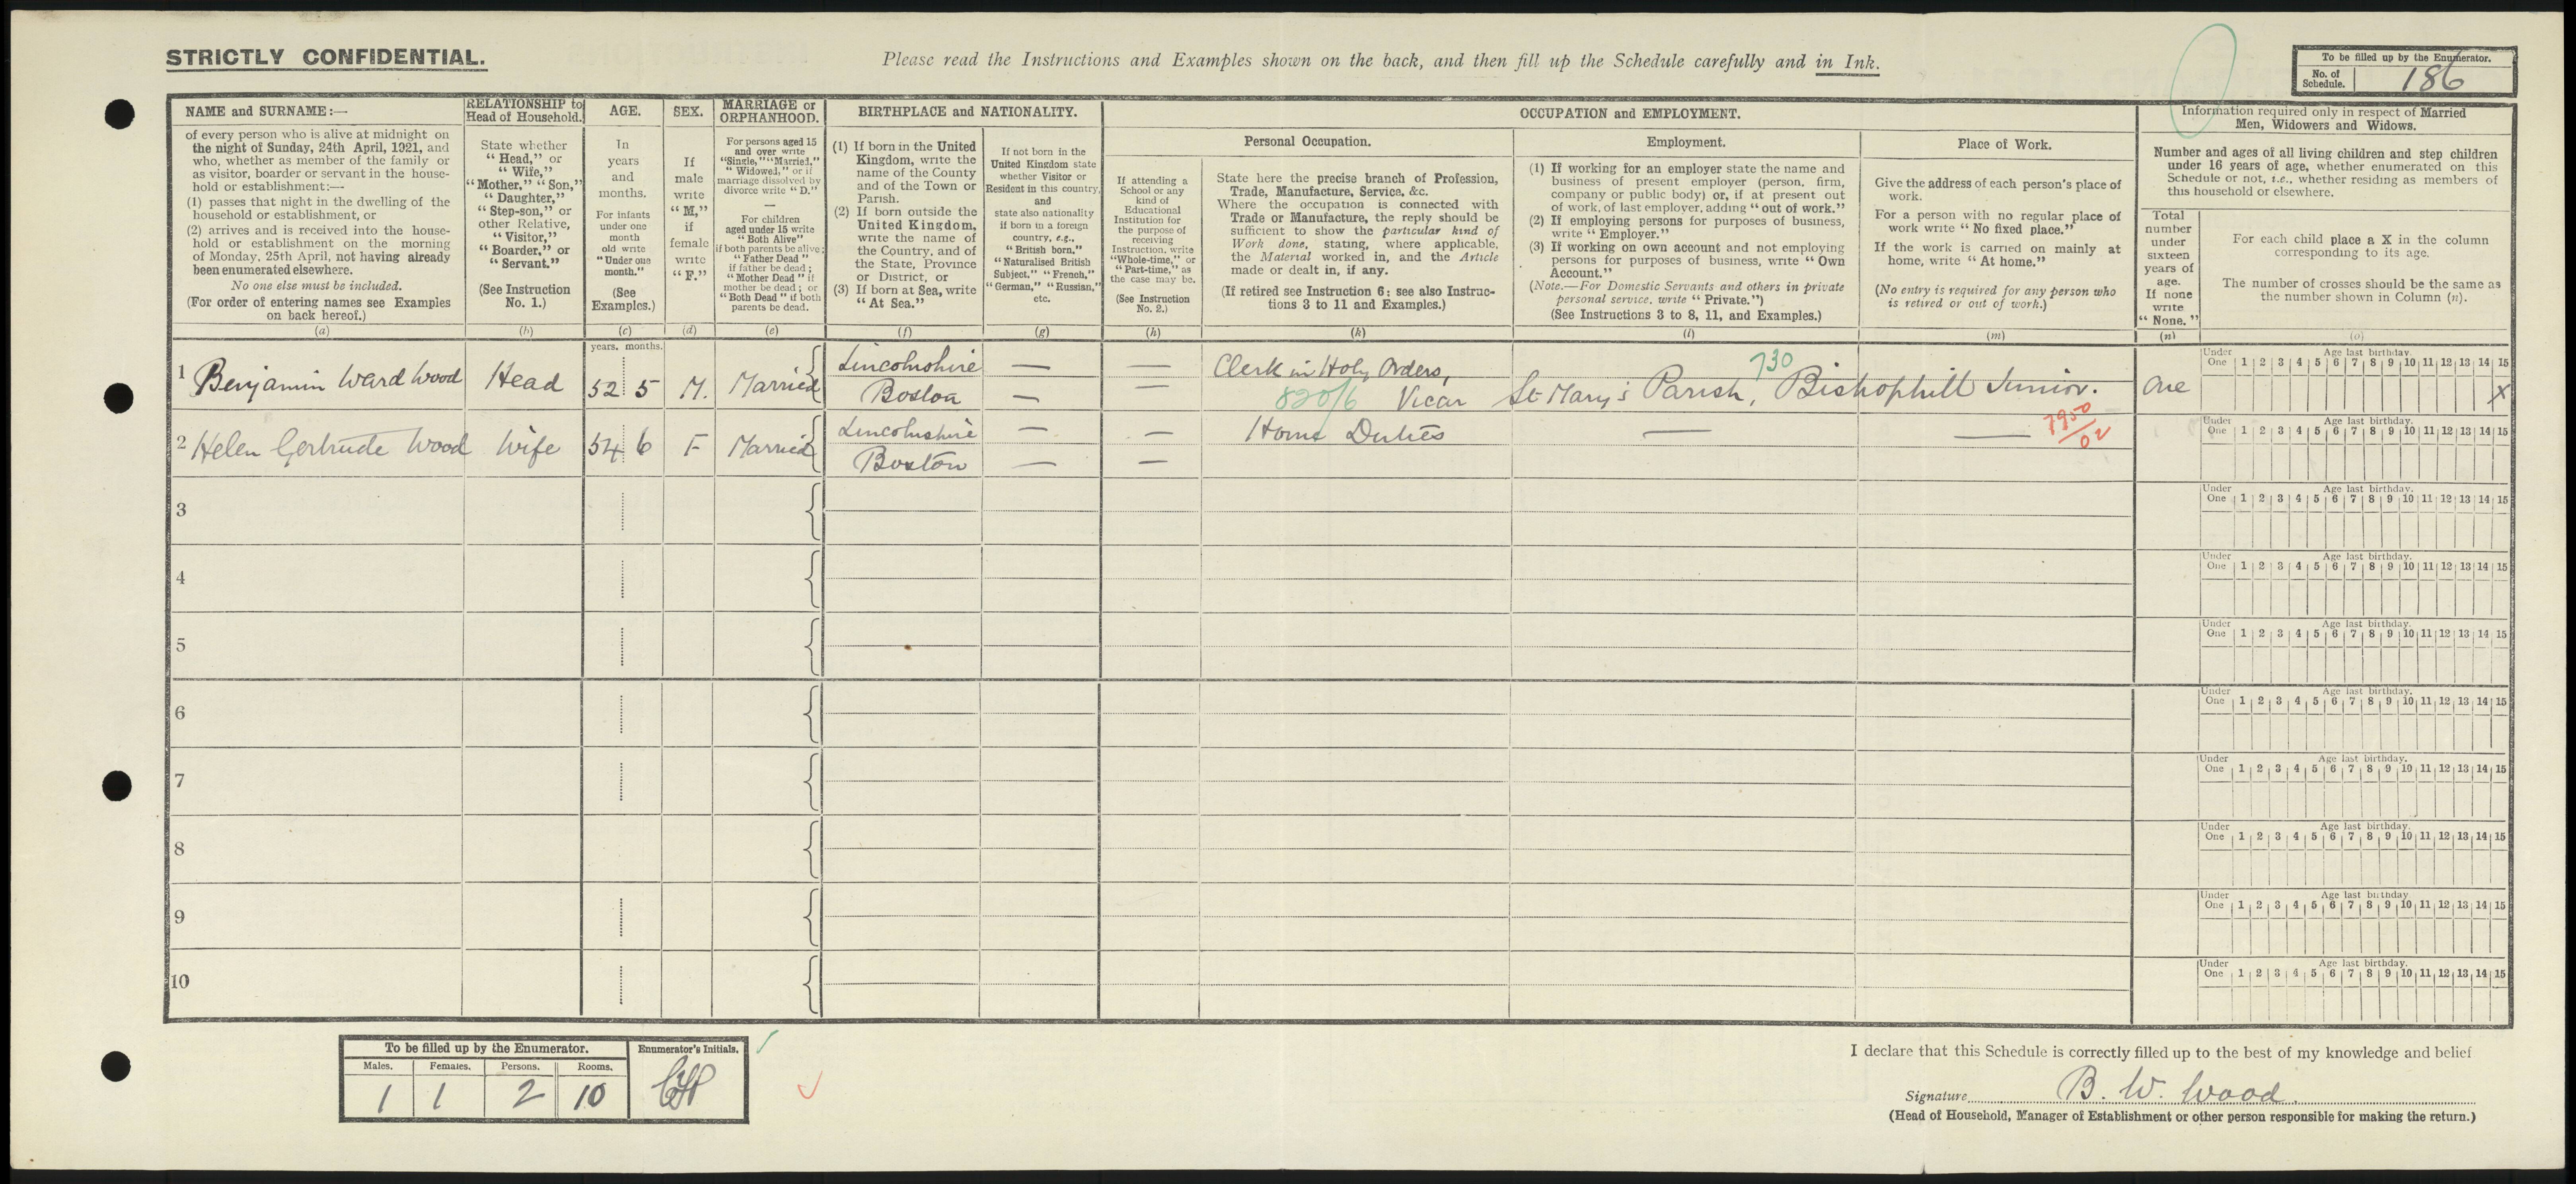 STRICTLY CONFIDENTIAL.
Please read the Instructions and Examples shown on the back, and then fill up the Schedule carefully and in Ink.
To be filled up by the Enumerator.
No. of Schedule. 186
NAME and SURNAME:—
of every person who is alive at midnight on
the night of Sunday, 24th April, 1921, and
who, whether as member of the family or
as visitor, boarder or servant in the house-
hold or establishment:—
(1) passes that night in the dwelling of the
household or establishment, or
(2) arrives and is received into the house-
hold or establishment on the morning
of Monday, 25th April, not having already
been enumerated elsewhere.
No one else must be included.
(For order of entering names see Examples
on back hereof.)
(a)
RELATIONSHIP to
Head of Household.
State whether
"Head," or
"Wife,"
"Mother," "Son,"
"Daughter,"
"Step-son," or
other Relative,
"Visitor,"
"Boarder," or
"Servant."
(See Instruction
No. 1.)
(b)
AGE.
In
years
and
months.
For infants
under one
month
old write
"Under one
month."
(See
Examples.)
(c)
SEX.
If
male
write
"M,"
if
female
write
"F."
(d)
MARRIAGE or
ORPHANHOOD.
For persons aged 15
and over write
"Single," "Married,"
"Widowed," or if
marriage dissolved by
divorce write "D."
—
For children
aged under 15 write
"Both Alive"
if both parents be alive;
"Father Dead"
if father be dead;
"Mother Dead" if
mother be dead; or
"Both Dead" if both
parents be dead.
(e)
BIRTHPLACE and NATIONALITY.
(1) If born in the United
Kingdom, write the
name of the County
and of the Town or
Parish.
(2) If born outside the
United Kingdom,
write the name of
the Country, and of
the State, Province
or District, or
(3) If born at Sea, write
"At Sea."
(f)
If not born in the
United Kingdom state
whether Visitor or
Resident in this country,
and
state also nationality
if born in a foreign
country, e.g.,
"British born,"
"Naturalised British
Subject," "French,"
"German," "Russian,"
etc.
(g)
OCCUPATION and EMPLOYMENT.
If attending a
School or any
kind of
Educational
Institution for
the purpose of
receiving
Instruction, write
"Whole-time," or
"Part-time," as
the case may be.
(See Instruction
No. 2.)
(h)
Personal Occupation.
State here the precise branch of Profession,
Trade, Manufacture, Service, &c.
Where the occupation is connected with
Trade or Manufacture, the reply should be
sufficient to show the particular kind of
Work done, stating, where applicable,
the Material worked in, and the Article
made or dealt in, if any.
(If retired see Instruction 6; see also Instruc-
tions 3 to 11 and Examples.)
(k)
Employment.
(1) If working for an employer state the name and
business of present employer (person, firm,
company or public body) or, if at present out
of work, of last employer, adding "out of work."
(2) If employing persons for purposes of business,
write "Employer."
(3) If working on own account and not employing
persons for purposes of business, write "Own
Account."
(Note.—For Domestic Servants and others in private
personal service, write "Private.")
(See Instructions 3 to 8, 11, and Examples.)
(l)
Place of Work.
Give the address of each person's place of
work.
For a person with no regular place of
work write "No fixed place."
If the work is carried on mainly at
home, write "At home."
(No entry is required for any person who
is retired or out of work.)
(m)
Information required only in respect of Married
Men, Widowers and Widows.
Number and ages of all living children and step children
under 16 years of age, whether enumerated on this
Schedule or not, i.e., whether residing as members of
this household or elsewhere.
Total
number
under
sixteen
years of
age.
If none
write
"None."
(n)
For each child place a X in the column
corresponding to its age.
The number of crosses should be the same as
the number shown in Column (n).
(o)
years. months.
1 Benjamin Ward Wood Head 52 5 M. Married Lincolnshire — — Clerk in Holy Orders, 730
Boston — — 820/6 Vicar St Mary's Parish, Bishophill Junior. One X
Under One Age last birthday. 1 2 3 4 5 6 7 8 9 10 11 12 13 14 15
2 Helen Gertrude Wood Wife 54 6 F Married Lincolnshire — — Home Duties — — 7950/02
Boston — —
Under One Age last birthday. 1 2 3 4 5 6 7 8 9 10 11 12 13 14 15
3 Under One Age last birthday. 1 2 3 4 5 6 7 8 9 10 11 12 13 14 15
4 Under One Age last birthday. 1 2 3 4 5 6 7 8 9 10 11 12 13 14 15
5 Under One Age last birthday. 1 2 3 4 5 6 7 8 9 10 11 12 13 14 15
6 Under One Age last birthday. 1 2 3 4 5 6 7 8 9 10 11 12 13 14 15
7 Under One Age last birthday. 1 2 3 4 5 6 7 8 9 10 11 12 13 14 15
8 Under One Age last birthday. 1 2 3 4 5 6 7 8 9 10 11 12 13 14 15
9 Under One Age last birthday. 1 2 3 4 5 6 7 8 9 10 11 12 13 14 15
10 Under One Age last birthday. 1 2 3 4 5 6 7 8 9 10 11 12 13 14 15
To be filled up by the Enumerator. Enumerator's Initials.
Males. Females. Persons. Rooms.
1 1 2 10
I declare that this Schedule is correctly filled up to the best of my knowledge and belief
Signature B. W. Wood.
(Head of Household, Manager of Establishment or other person responsible for making the return.)